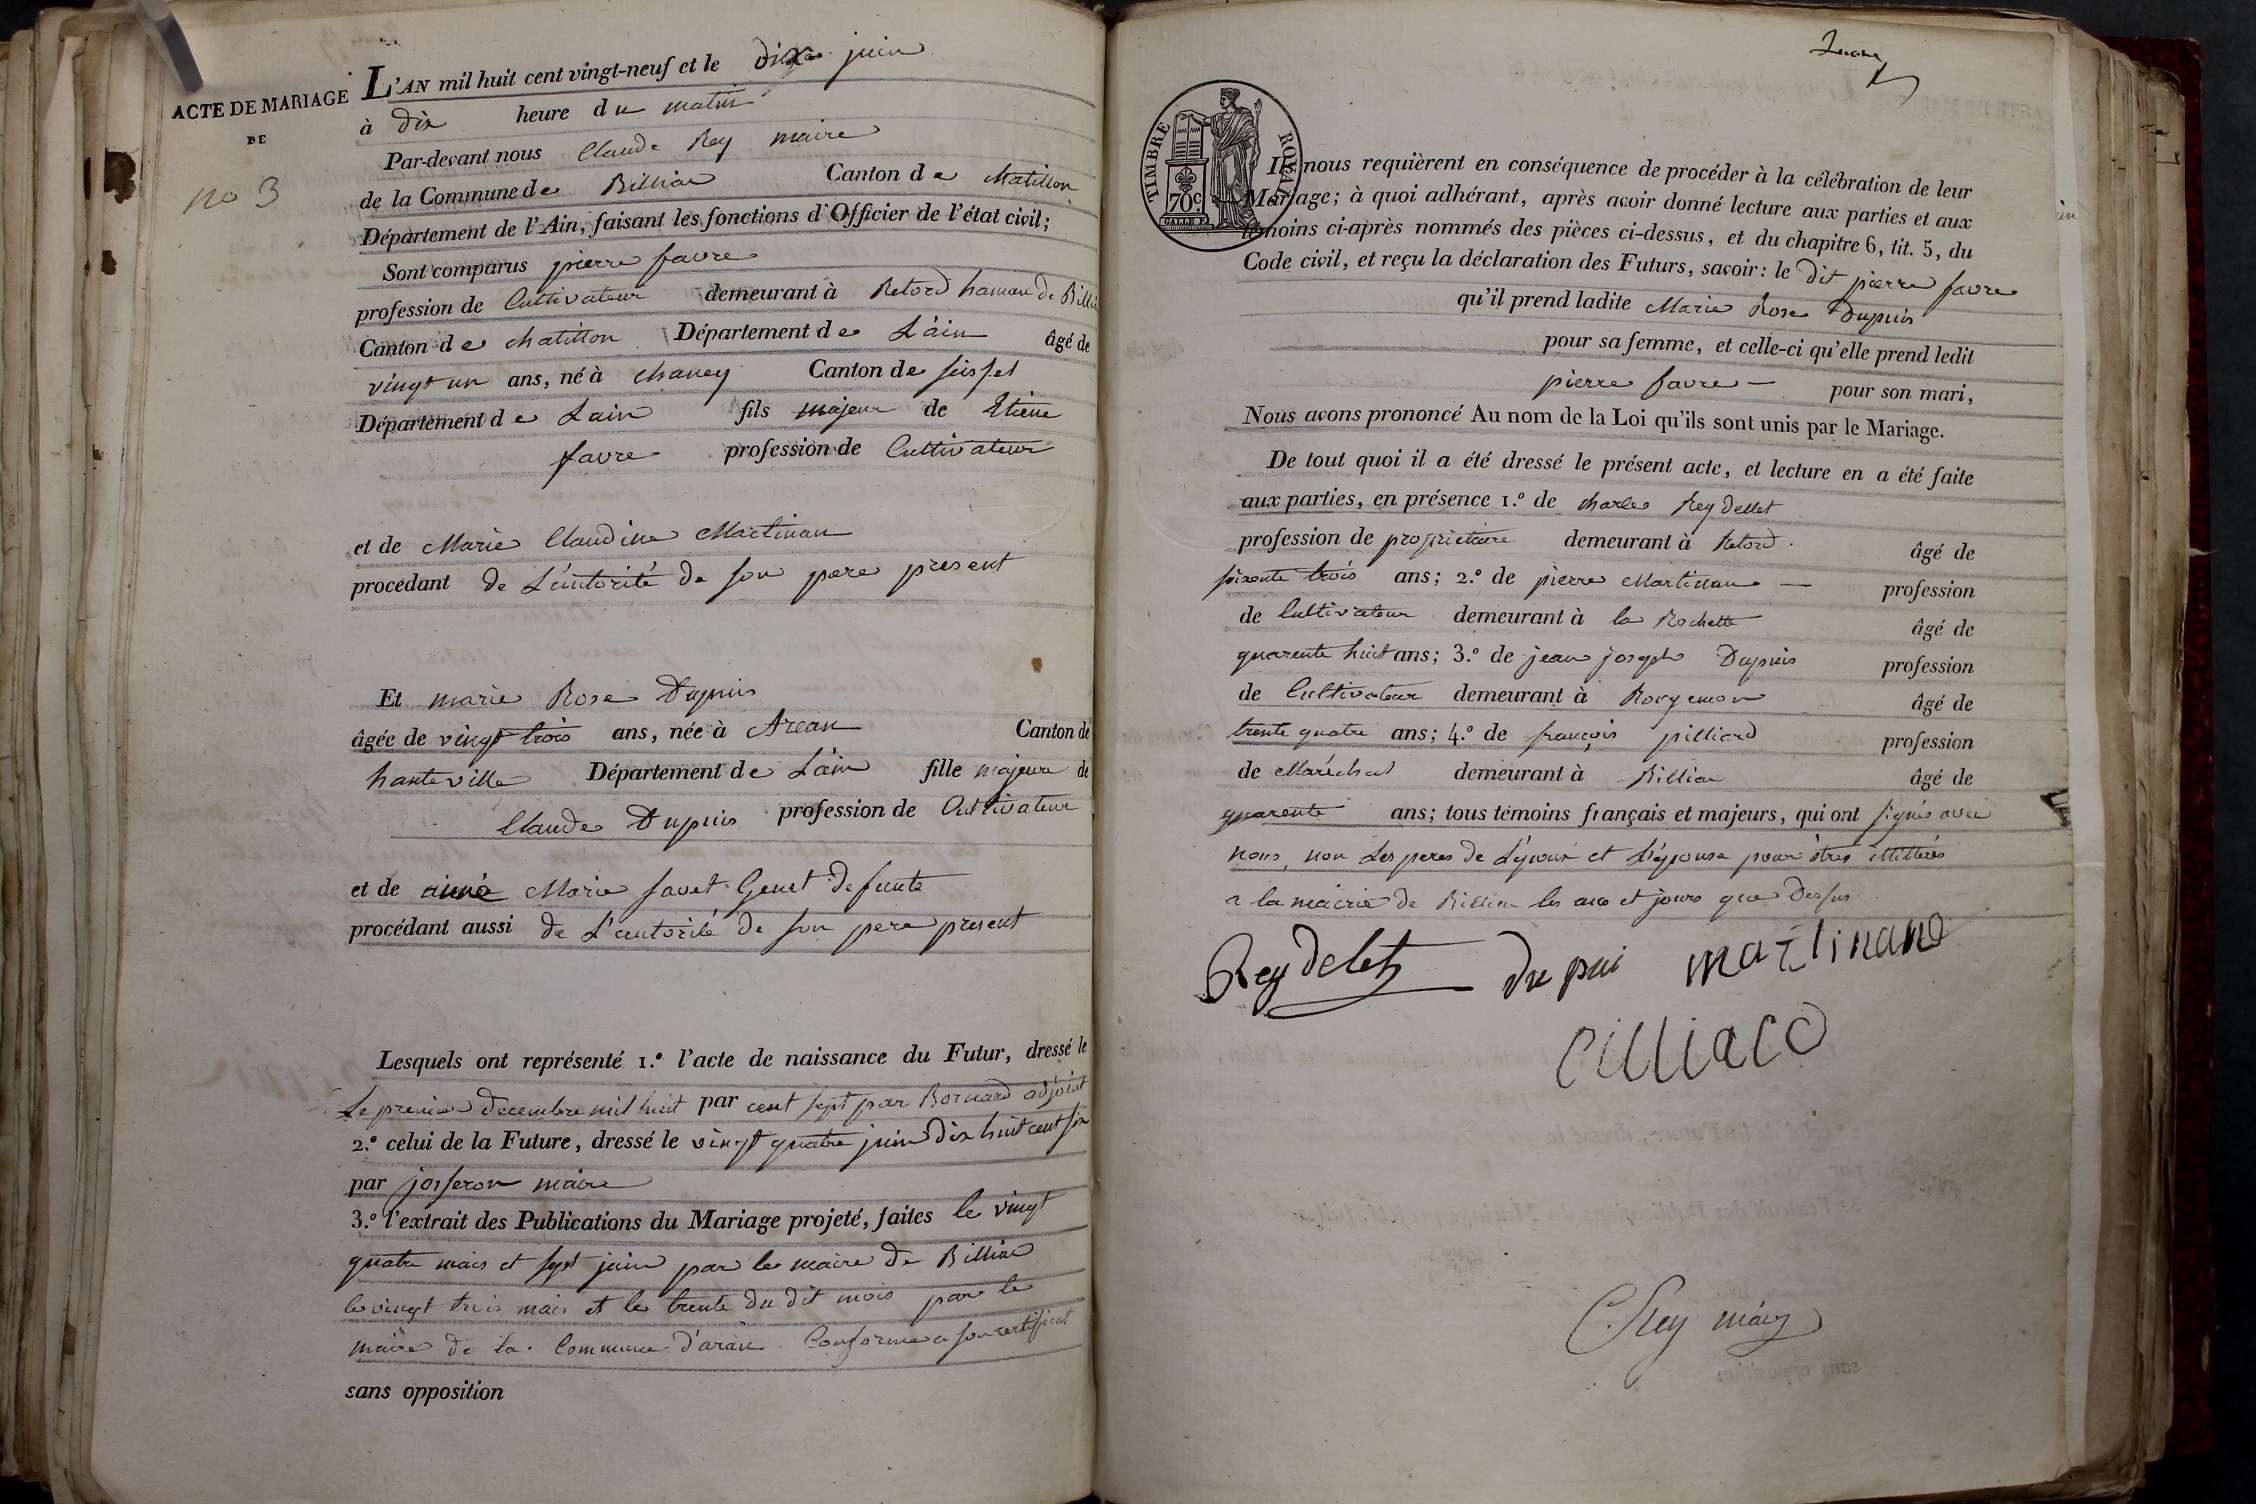 ACTE DE MARIAGE
DE
no 3
L'AN mil huit cent vingt-neuf et le dix juin
à dix heure du matin
Par-devant nous Claude Rey maire
de la Commune de Billiat Canton de Chatillon
Département de l'Ain, faisant les fonctions d'Officier de l'état civil;
Sont comparus pierre favre
profession de Cultivateur demeurant à Retord hamau de Billia
Canton de chatillon Département de L'ain âgé de
vingt un ans, né à chaney Canton de seissel
Département de Lain fils majeur de Etiene
favre profession de Cultivateur
et de Marie Claudine Martinan
procédant de L'autorité de son pere present
Et marie Rose Dupuis
âgée de vingt trois ans, née à Aran Canton de
hauteville Département de L'ain fille majeure de
Claude Dupuis profession de Cultivateur
et de Marie savet Genet defunte
procédant aussi de L'autorité de son pere present
Lesquels ont représenté 1.º l'acte de naissance du Futur, dressé le
Le premier decembre mil huit par cent sept par Bornard adjoint
2.º celui de la Future, dressé le vingt quatre juin dix huit cent six
par josseron maire
3.º l'extrait des Publications du Mariage projeté, faites le vingt
quatre mais et sept juin par le maire de Billiat
le vingt trois mais et le trente du dit mois par le
maire de la Commune d'aran Conforme a son certificat
sans opposition
TIMBRE ROYAL
70c
Ils nous requièrent en conséquence de procéder à la célébration de leur
Mariage; à quoi adhérant, après avoir donné lecture aux parties et aux
témoins ci-après nommés des pièces ci-dessus, et du chapitre 6, tit. 5, du
Code civil, et reçu la déclaration des Futurs, savoir: le dit pierre favre
qu'il prend ladite Marie Rose Dupuis
pour sa femme, et celle-ci qu'elle prend ledit
pierre favre — pour son mari,
Nous avons prononcé Au nom de la Loi qu'ils sont unis par le Mariage.
De tout quoi il a été dressé le présent acte, et lecture en a été faite
aux parties, en présence 1.º de charles Reydellet
profession de propriétaire demeurant à Retord âgé de
soixente trois ans; 2.º de pierre Martinan — profession
de Cultivateur demeurant à la Rochette âgé de
quarente huit ans; 3.º de jean joseph Dupuis profession
de Cultivateur demeurant à Rougemon âgé de
trente quatre ans; 4.º de françois pilliard profession
de Maréchal demeurant à Billiat âgé de
quarente ans; tous témoins français et majeurs, qui ont signés avec
nous, non Les peres de L'époux et L'épouse pour être illitérés
a la mairie de Billiat les an et jours que dessus
Reydelet dupui martinand
Pilliard
C. Rey maire